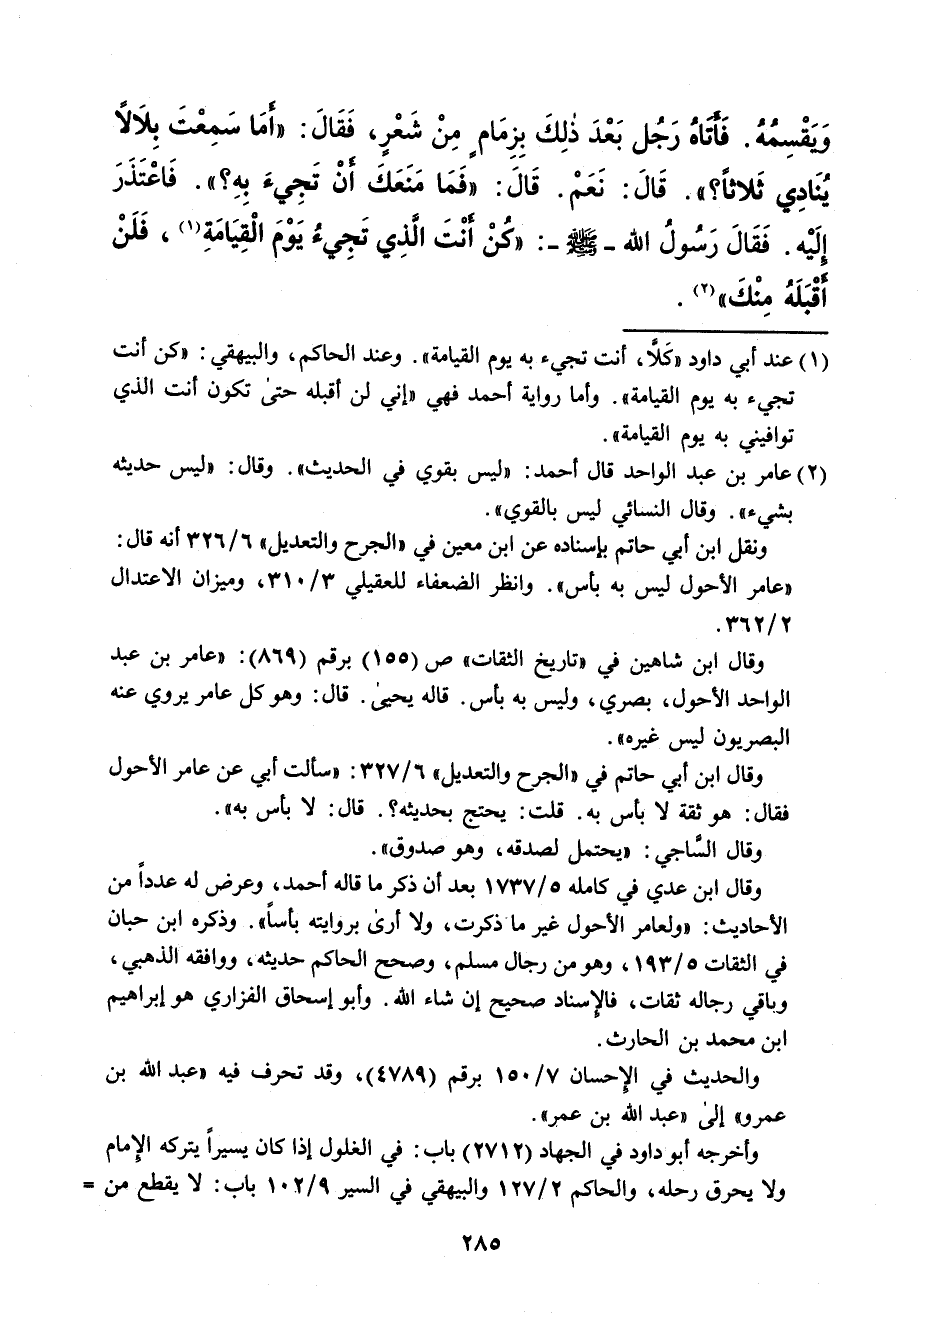 وَيَقْسِمُهُ. فَأَتَاهُ رَجُل بَعْدَ ذٰلِكَ بِزِمَامٍ مِنْ شَعْرٍ، فَقَالَ: «أَمَا سَمِعْتَ بِلَالاً
يُنَادِي ثَلاثاً؟». قَالَ: نَعَمْ. قَالَ: «فَمَا مَنَعَكَ أَنْ تَجِيءَ بِهِ؟». فَاعْتَذَرَ
إِلَيْهِ. فَقَالَ رَسُولُ الله - ﷺ -: «كُنْ أَنْتَ الَّذِي تَجِيءُ يَوْمَ الْقِيَامَةِ(١)، فَلَنْ
أَقْبَلَهُ مِنْكَ»(٢).
(١) عند أبي داود «كَلَّا، أنت تجيء به يوم القيامة». وعند الحاكم، والبيهقي: «كن أنت
تجيء به يوم القيامة». وأما رواية أحمد فهي «إني لن أقبله حتىٰ تكون أنت الذي
توافيني به يوم القيامة».
(٢) عامر بن عبد الواحد قال أحمد: «ليس بقوي في الحديث». وقال: «ليس حديثه
بشيء». وقال النسائي ليس بالقوي».
ونقل ابن أبي حاتم بإسناده عن ابن معين في «الجرح والتعديل» ٣٢٦/٦ أنه قال:
«عامر الأحول ليس به بأس». وانظر الضعفاء للعقيلي ٣١٠/٣، وميزان الاعتدال
٣٦٢/٢.
وقال ابن شاهين في «تاريخ الثقات» ص (١٥٥) برقم (٨٦٩): «عامر بن عبد
الواحد الأحول، بصري، وليس به بأس. قاله يحيىٰ. قال: وهو كل عامر يروي عنه
البصريون ليس غيره».
وقال ابن أبي حاتم في «الجرح والتعديل» ٣٢٧/٦: «سألت أبي عن عامر الأحول
فقال: هو ثقة لا بأس به. قلت: يحتج بحديثه؟. قال: لا بأس به».
وقال السَّاجي: «يحتمل لصدقه، وهو صدوق».
وقال ابن عدي في كامله ١٧٣٧/٥ بعد أن ذكر ما قاله أحمد، وعرض له عدداً من
الأحاديث: «ولعامر الأحول غير ما ذكرت، ولا أرىٰ بروايته بأساً». وذكره ابن حبان
في الثقات ١٩٣/٥، وهو من رجال مسلم، وصحح الحاكم حديثه، ووافقه الذهبي،
وباقي رجاله ثقات، فالإسناد صحيح إن شاء الله. وأبو إسحاق الفزاري هو إبراهيم
ابن محمد بن الحارث.
والحديث في الإحسان ١٥٠/٧ برقم (٤٧٨٩)، وقد تحرف فيه «عبد الله بن
عمرو» إلىٰ «عبد الله بن عمر».
وأخرجه أبو داود في الجهاد (٢٧١٢) باب: في الغلول إذا كان يسيراً يتركه الإمام
ولا يحرق رحله، والحاكم ١٢٧/٢ والبيهقي في السير ١٠٢/٩ باب: لا يقطع من =
٢٨٥